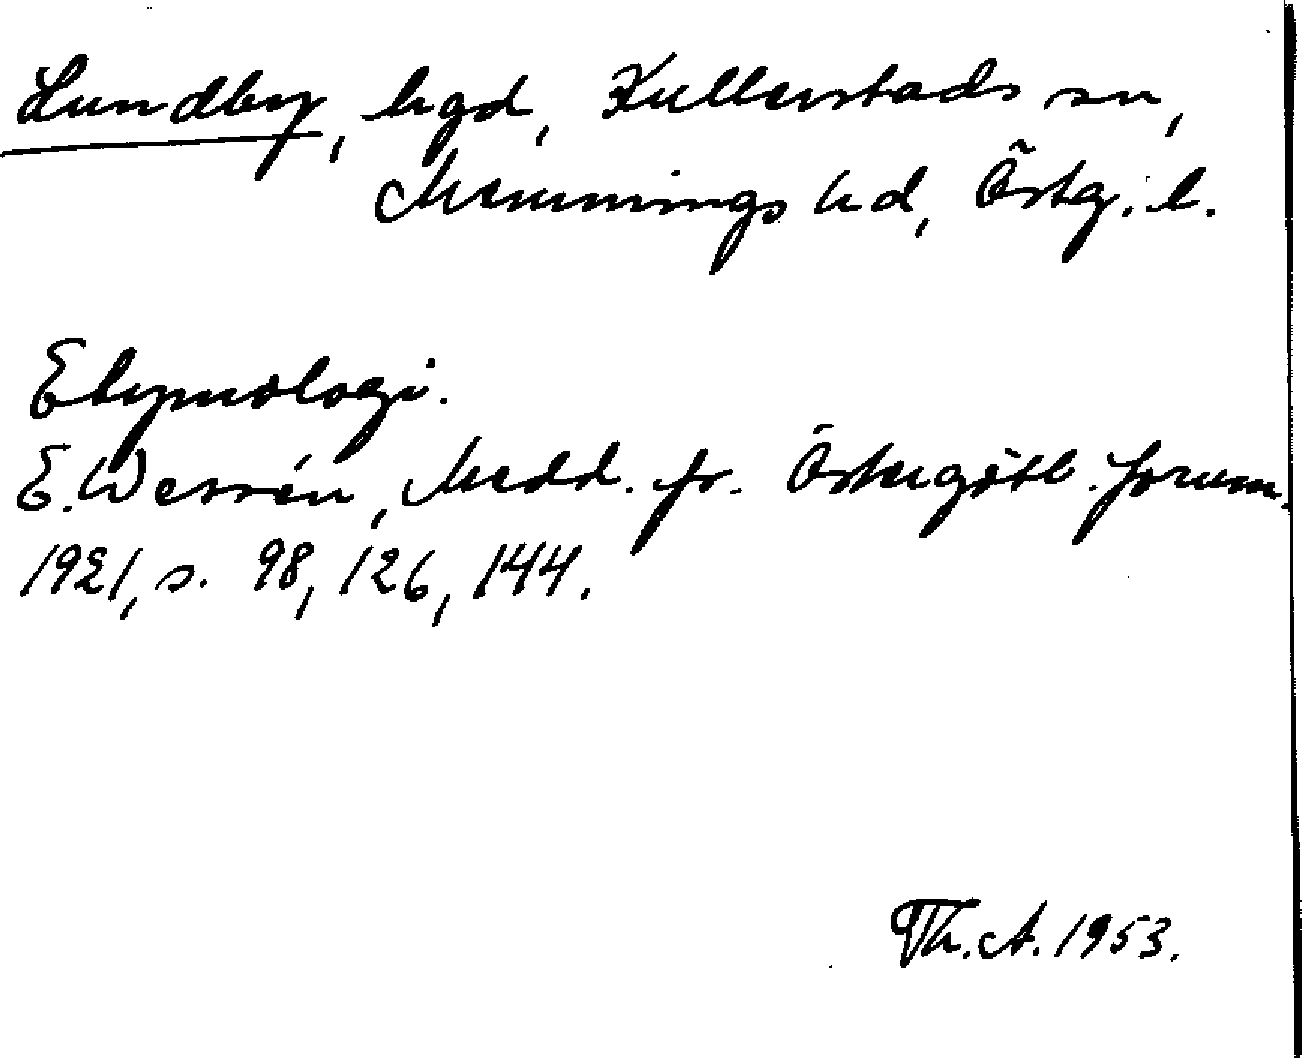 Lundby, hgd, Kullerstads sn,
Memmings hd, Östg. l.
Etymologi.
E. Wessén, Medd. fr. Östergötl. fornm.
1921, s. 98, 126, 144.
Th. A. 1953.